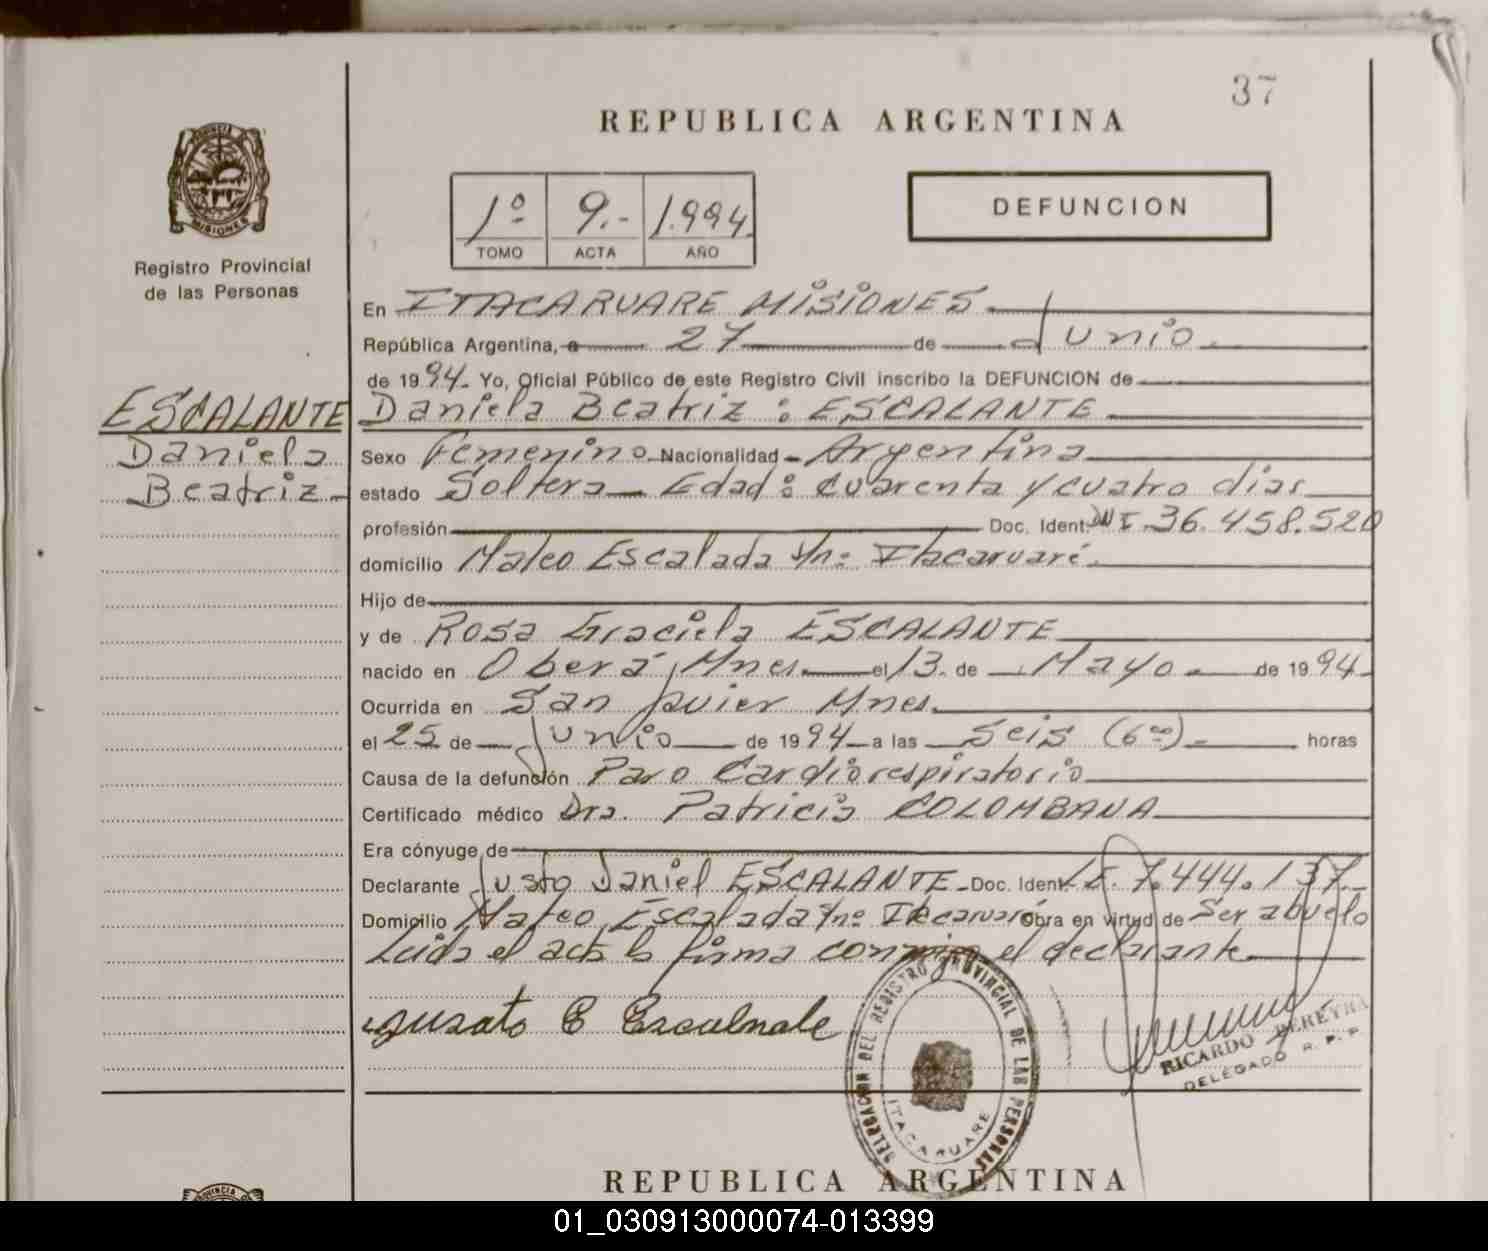 37
REPUBLICA ARGENTINA
1º 9.- 1.994
TOMO ACTA AÑO
DEFUNCION
PROVINCIA DE
MISIONES
Registro Provincial
de las Personas
En ITACARUARE MISIONES
República Argentina, a 27 de Junio
de 1994. Yo, Oficial Público de este Registro Civil inscribo la DEFUNCION de
ESCALANTE
Daniela
Beatriz
Daniela Beatriz : ESCALANTE
Sexo Femenino Nacionalidad Argentina
estado Soltera Edad: cuarenta y cuatro dias
profesión Doc. Ident. DNI. 36.458.520
domicilio Mateo Escalada s/nº Itacaruaré.
Hijo de
y de Rosa Graciela ESCALANTE
nacido en Oberá, Mnes. el 13 de Mayo de 1994
Ocurrida en San Javier Mnes.
el 25 de Junio de 1994 a las Seis (6ºº) horas
Causa de la defunción Paro Cardiorespiratorio
Certificado médico Dra. Patricia COLOMBANA
Era cónyuge de
Declarante Justo Daniel ESCALANTE Doc. Ident. L.E. 7.444.137.
Domicilio Mateo Escalada s/nº Itacaruaré Obra en virtud de Ser abuelo
Leida el acta la firma conmigo el declarante
RICARDO PEREYRA
DELEGADO R. P. P.
DELEGACION DEL REGISTRO PROVINCIAL DE LAS PERSONAS
ITACARUARE
REPUBLICA ARGENTINA
PROVINCIA DE
01_030913000074-013399